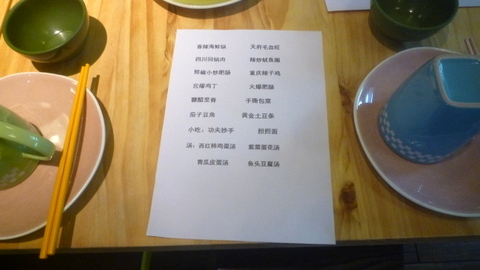 香辣海鲜锅 天府毛血旺
四川回锅肉 辣炒鱿鱼须
鲜椒小炒肥肠 重庆辣子鸡
宫爆鸡丁 火爆肥肠
醋醋菜卷 手撕包菜
茄子豆角 黄金土豆条
小吃：功夫抄手 担担面
汤：西红柿鸡蛋汤 紫菜蛋花汤
黄瓜皮蛋汤 鱼头豆腐汤